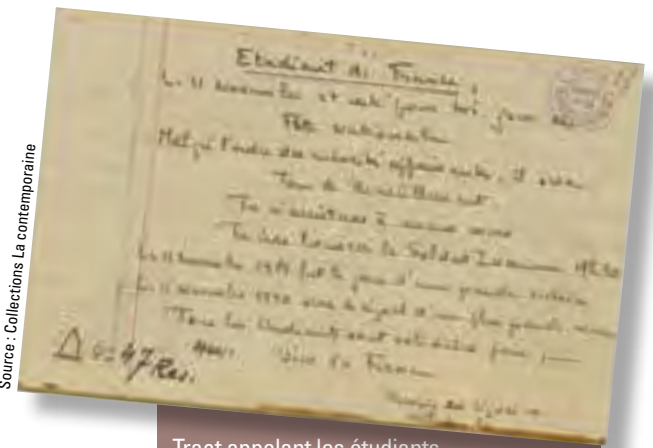 Source : Collections La contemporaine
Etudiant de France :
Le 11 Novembre est resté pour toi jour de
Fête nationale
Malgré l'ordre des autorités opprimantes, il sera
Jour de recueillement
Tu n'assisteras à aucun cours
Tu iras honorer le Soldat Inconnu 17h30
Le 11 Novembre 1918 fut le jour d'une grande victoire
Le 11 Novembre 1940 sera le signal d'une plus grande
Tous les étudiants sont solidaires pour
Vive la France
47 Rés.
Tract appelant les étudiants